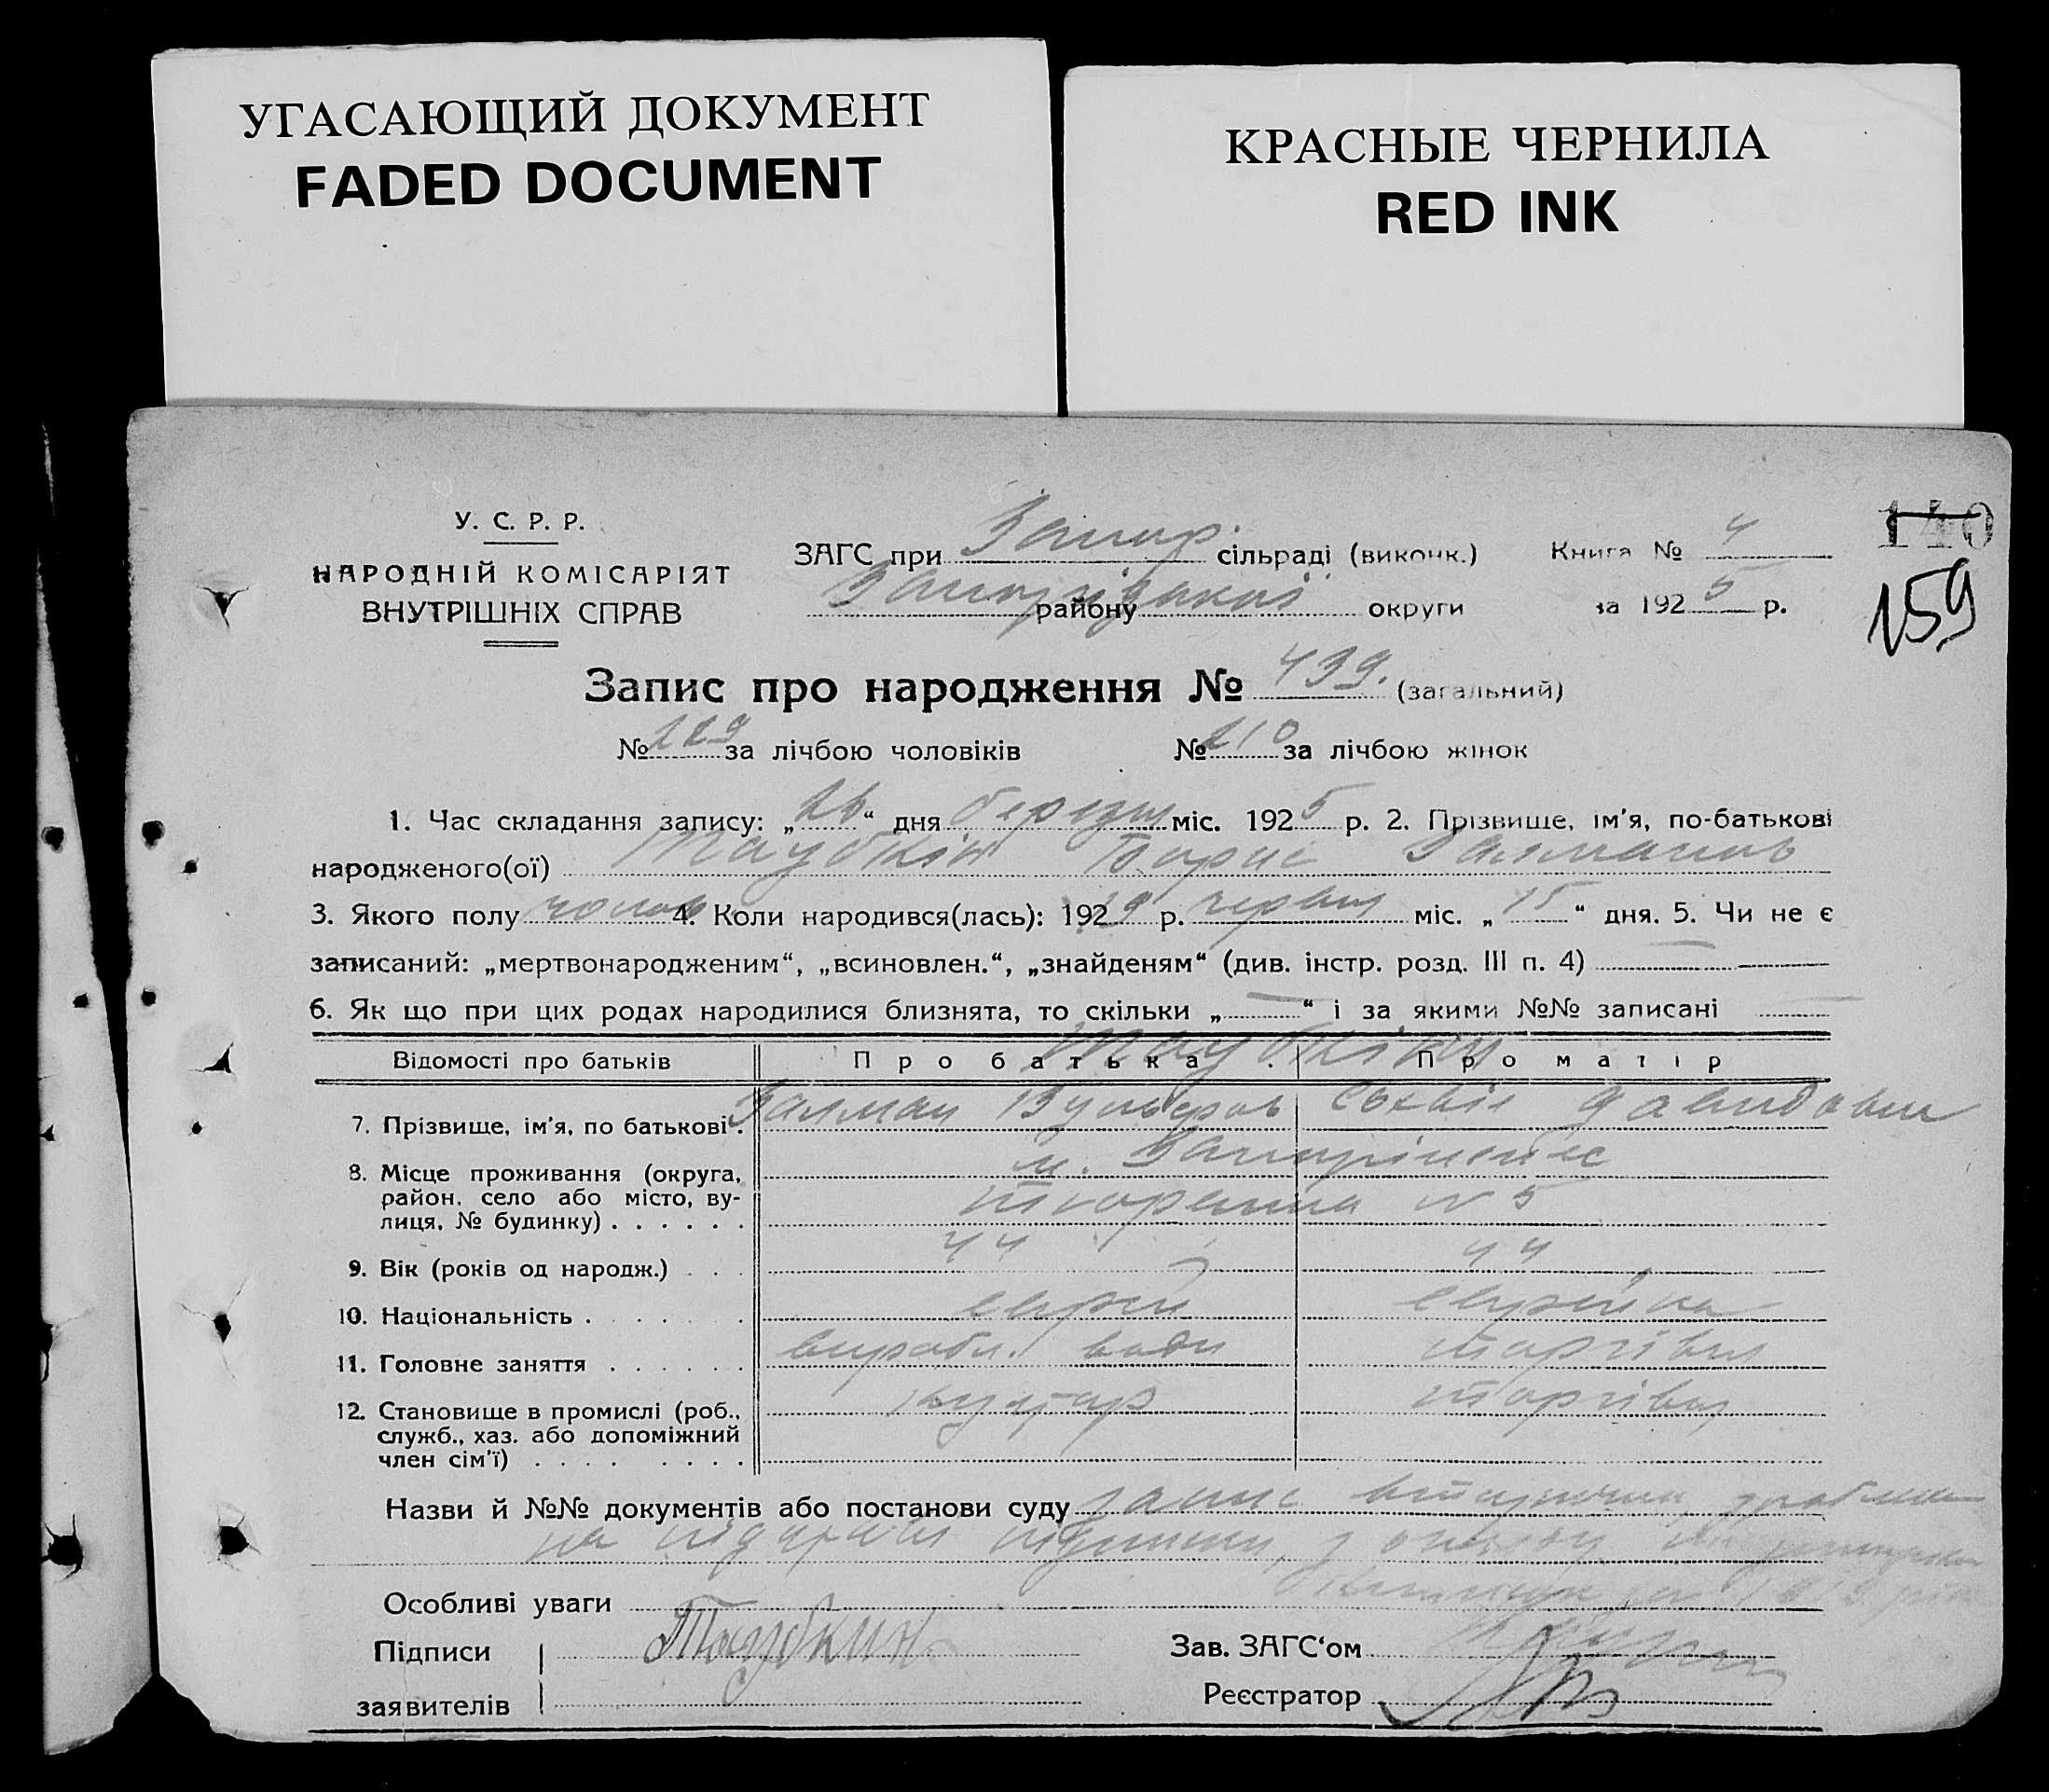 УГАСАЮЩИЙ ДОКУМЕНТ
FADED DOCUMENT
КРАСНЫЕ ЧЕРНИЛА
RED INK
У. С. Р. Р.
НАРОДНІЙ КОМІСАРІЯТ
ВНУТРІШНІХ СПРАВ
ЗАГС при Запор. сільраді (виконк.)
Запорізької району округи
Книга № 4
за 1925 р.
140
159
Запис про народження № 439. (загальний)
№ 229 за лічбою чоловіків № 210 за лічбою жінок
1. Час складання запису: „26“ дня березня міс. 1925 р. 2. Прізвище, ім'я, по-батькові
народженого(ої) Таубкін Борис Залманов
3. Якого полу чолов. 4. Коли народився(лась): 192 р. червня міс. „15“ дня. 5. Чи не є
записаний: „мертвонародженим“, „всиновлен.“, „знайденям“ (див. інстр. розд. III п. 4)
6. Як що при цих родах народилися близнята, то скільки „ “ і за якими №№ записані
Відомості про батьків Про батька Про матір
Таубкіни
7. Прізвище, ім'я, по батькові. Залман Вульфов Давидовн
8. Місце проживання (округа, район, село або місто, вулиця, № будинку) м. Запоріжжє
№ 5
9. Вік (років од народж.) 44 44
10. Національність єврей єврейка
11. Головне заняття вироб. води торгівля
12. Становище в промислі (роб., служб., хаз. або допоміжний член сім'ї) кустар
Назви й №№ документів або постанови суду запис
на підставі з
Особливі уваги
Підписи заявителів Таубкин
Зав. ЗАГС'ом
Реєстратор